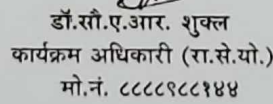 डॉ.सौ.ए.आर. शुक्ल
कार्यक्रम अधिकारी (रा.से.यो.)
मो.नं. ८८८८९८८१४४